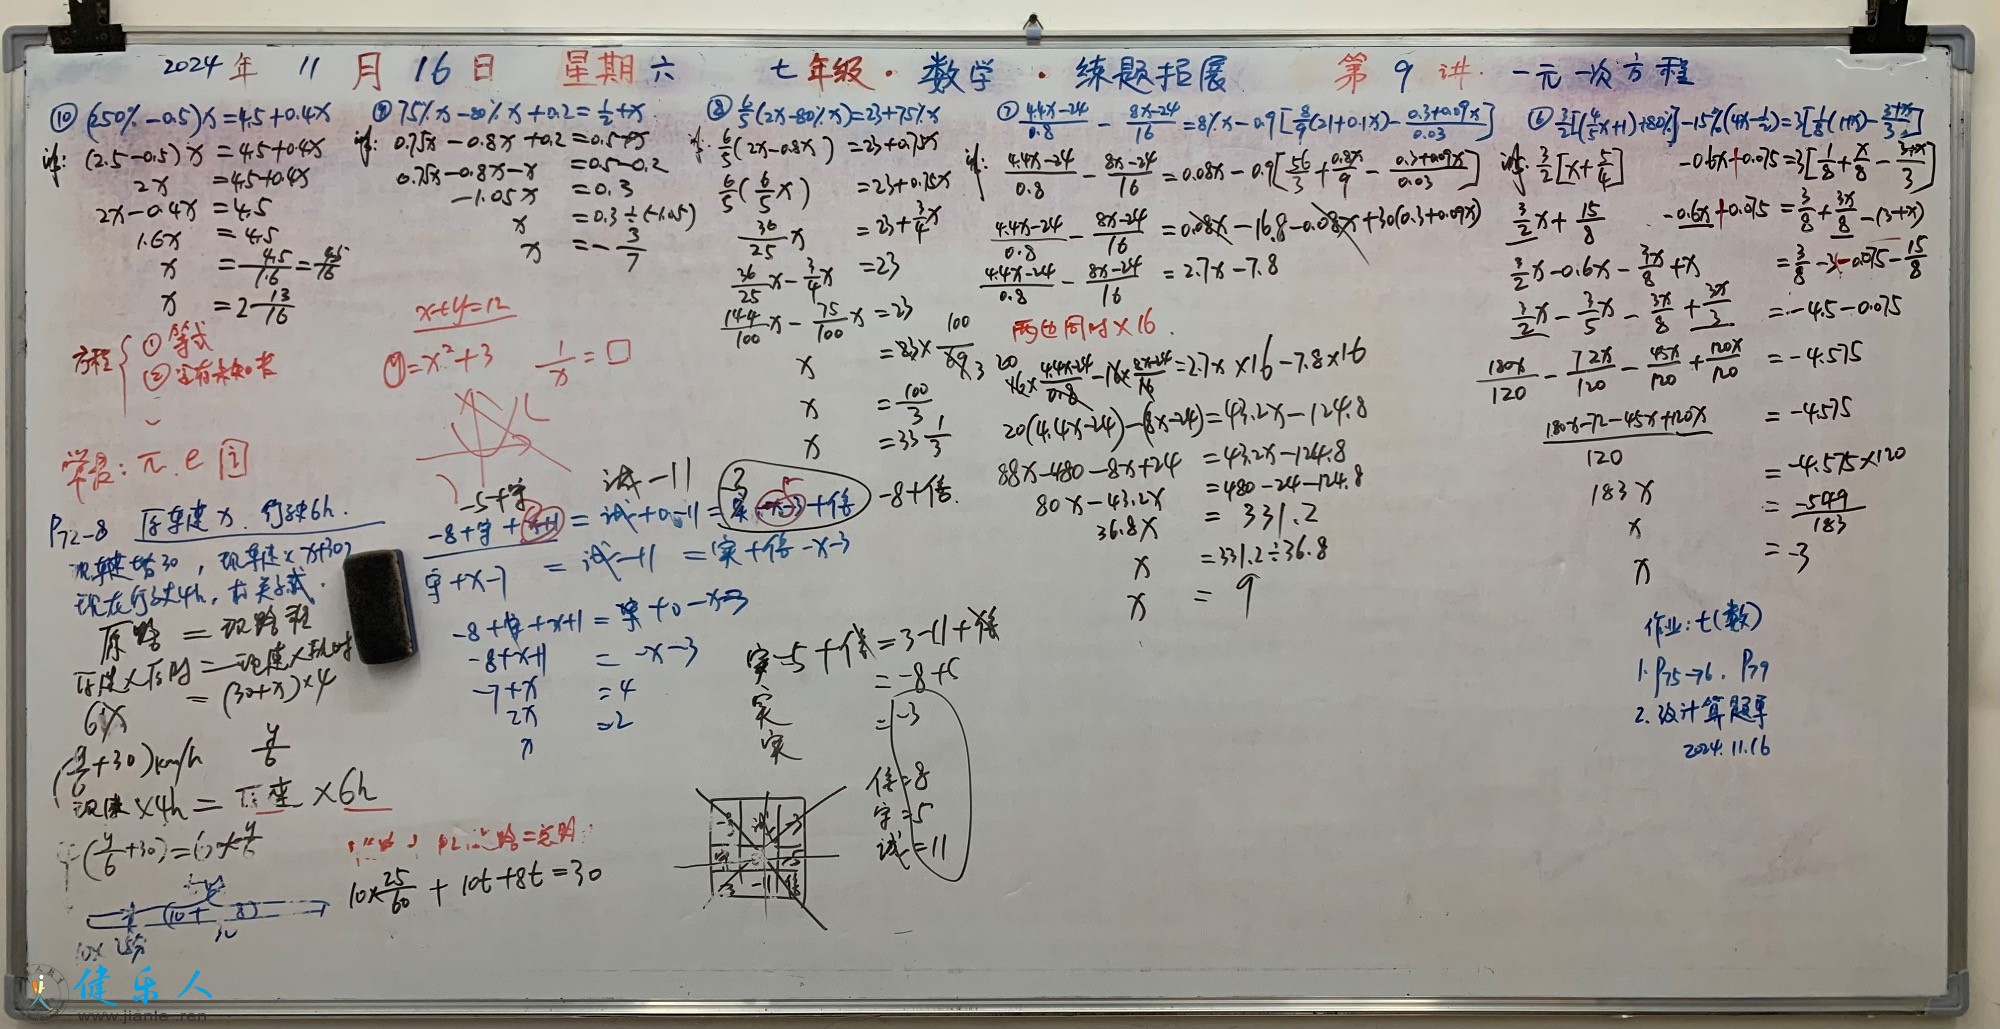 2024年 11月16日 星期六 七年级·数学·练题拓展 第9讲·一元一次方程
⑩ (250%-0.5)x=4.5+0.4x
解: (2.5-0.5)x=4.5+0.4x
2x=4.5+0.4x
2x-0.4x=4.5
1.6x=4.5
x=4.5/1.6=45/16
x=2 13/16
方程
① 等式
② 含有未知数
x+y=12
y=x²+3 1/x=□
常量: π e
⑨ 75%x-80%x+0.2=1/2+x
解: 0.75x-0.8x+0.2=0.5+x
0.75x-0.8x-x=0.5-0.2
-1.05x=0.3
x=0.3÷(-1.05)
x=-3/7
⑧ 6/5(2x-80%x)=23+75%x
解: 6/5(2x-0.8x)=23+0.75x
6/5(6/5x)=23+0.75x
36/25x=23+3/4x
36/25x-3/4x=23
144/100x-75/100x=23
x=23×100/69 3
x=100/3
x=33 1/3
⑦ 4.4x-24/0.8-8x-24/16=8%x-0.9[8/9(21+0.1x)-0.3+0.09x/0.03]
解: 4.4x-24/0.8-8x-24/16=0.08x-0.9[56/3+0.8x/9-0.3+0.09x/0.03]
4.4x-24/0.8-8x-24/16=0.08x-16.8-0.08x+30(0.3+0.09x)
4.4x-24/0.8-8x-24/16=2.7x-7.8
两边同时×16.
20 16×4.4x-24/0.8-16×8x-24/16=2.7x×16-7.8×16
20(4.4x-24)-(8x-24)=43.2x-124.8
88x-480-8x+24=43.2x-124.8
80x-43.2x=480-24-124.8
36.8x=331.2
x=331.2÷36.8
x=9
⑥ 3/2[(4/5x+1)+80%]-15%(4x-1/2)=3[1/8(1+x)-3+x/3]
解: 3/2[x+5/4]-0.6x+0.075=3[1/8+x/8-3+x/3]
3/2x+15/8-0.6x+0.075=3/8+3x/8-(3+x)
3/2x-0.6x-3x/8+x=3/8-3-0.075-15/8
3/2x-3/5x-3x/8+3x/3=-4.5-0.075
180x/120-72x/120-45x/120+120x/120=-4.575
180x-72-45x+120x/120=-4.575
183x=-4.575×120
x=-549/183
x=-3
作业: 七(数)
1. P75→76. P79
2. 计算题单
2024.11.16
P72-8 原车速x. 行驶6h.
现车速增30, 现车速x x+30
现在行驶4h, 有关系式.
原路=现路程
原速×原时=现速×现时
6x=(30+x)×4
(y/6+30)km/h y/6
现速×4h=原速×6h
4(y/6+30)=6×y/6
10× 25分 (10+8) 30
10×25/60+10t+8t=30
-5+字 试-11 -8+信.
-8+字+x+1=试+0-11=实-x-3+信
字+x-7=试-11=实+信-x-3
-8+字+x+1=字+0-x-3
-8+x+1=-x-3
-7+x=4
2x=2
x
实-5+信=3-11+信
实=-8+5
实=-3
实
信=8
字=5
试=11
试 -3
字 -5
-11 信
健乐人
www.jianle.ren